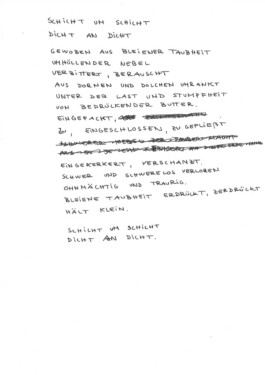 SCHICHT UM SCHICHT
DICHT AN DICHT
GEWOBEN AUS BLEIENER TAUBHEIT
UMHÜLLENDER NEBEL
VERBITTERT, BERAUSCHT
AUS DORNEN UND DOLCHEN UMRANKT
UNTER DER LAST UND STUMPFHEIT
VON BEDRÜCKENDER BUTTER.
EINGEPACKT,
ZU, EINGESCHLOSSEN, ZU GEFLIEßT
EINGEKERKERT, VERSCHANZT.
SCHWER UND SCHWERELOS VERLOREN
OHNMÄCHTIG UND TRAURIG.
BLEIENE TAUBHEIT ERDRÜCKT, ZERDRÜCKT
HÄLT KLEIN.
SCHICHT UM SCHICHT
DICHT AN DICHT.